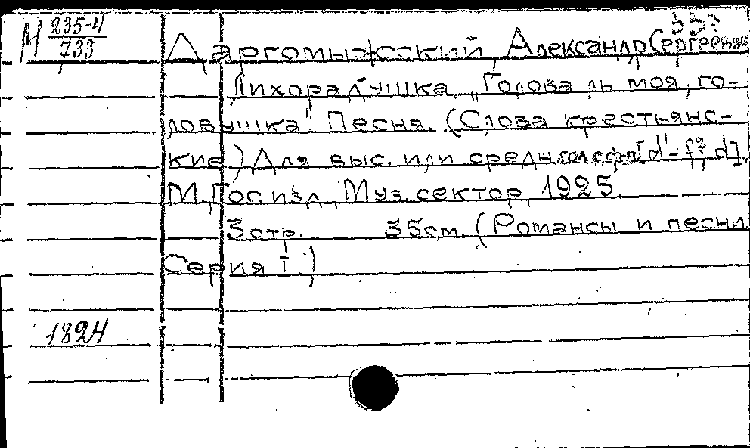 М 235-4/733
353
Даргомыжский, Александр Сергеевич
Лихорадушка "Голова ль моя, го-
ловушка". Песня. (Слова крестьянс-
кие) Для выс. или средн. голоса
М, Госизд, Муз. сектор, 1925.
3 стр. 35 см. (Романсы и песни
Серия I)
1824